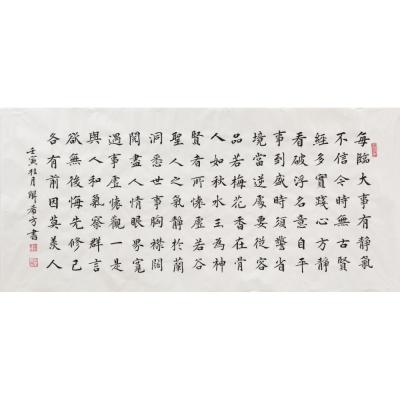 每臨大事有靜氣
不信今時無古賢
經多實踐心方靜
看破浮名意自平
事到盛時須警省
境當逆處要從容
品若梅花香在骨
人如秋水玉為神
賢者所懷虛若谷
聖人之氣靜於蘭
洞悉世事胸襟闊
閱盡人情眼界寬
遇事虛懷觀一是
與人和氣察群言
欲無後悔先修己
各有前因莫羨人
壬寅桂月書